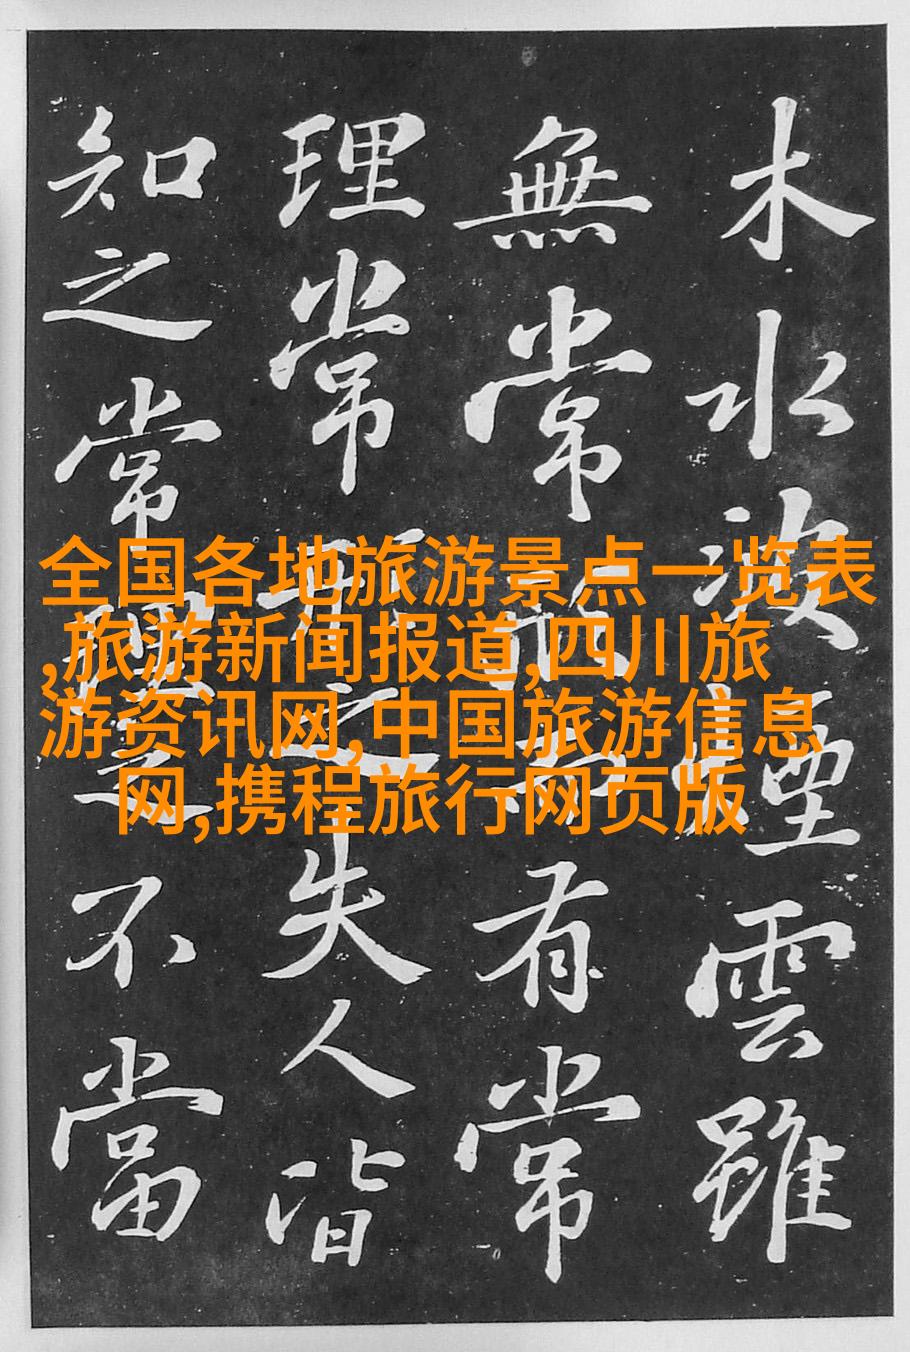 木水波煙雲雖
無常形而有常
理常形之失人皆
知之常理之不當
全国各地旅游景点一览表
,旅游新闻报道,四川旅
游资讯网,中国旅游信息
网,携程旅行网页版